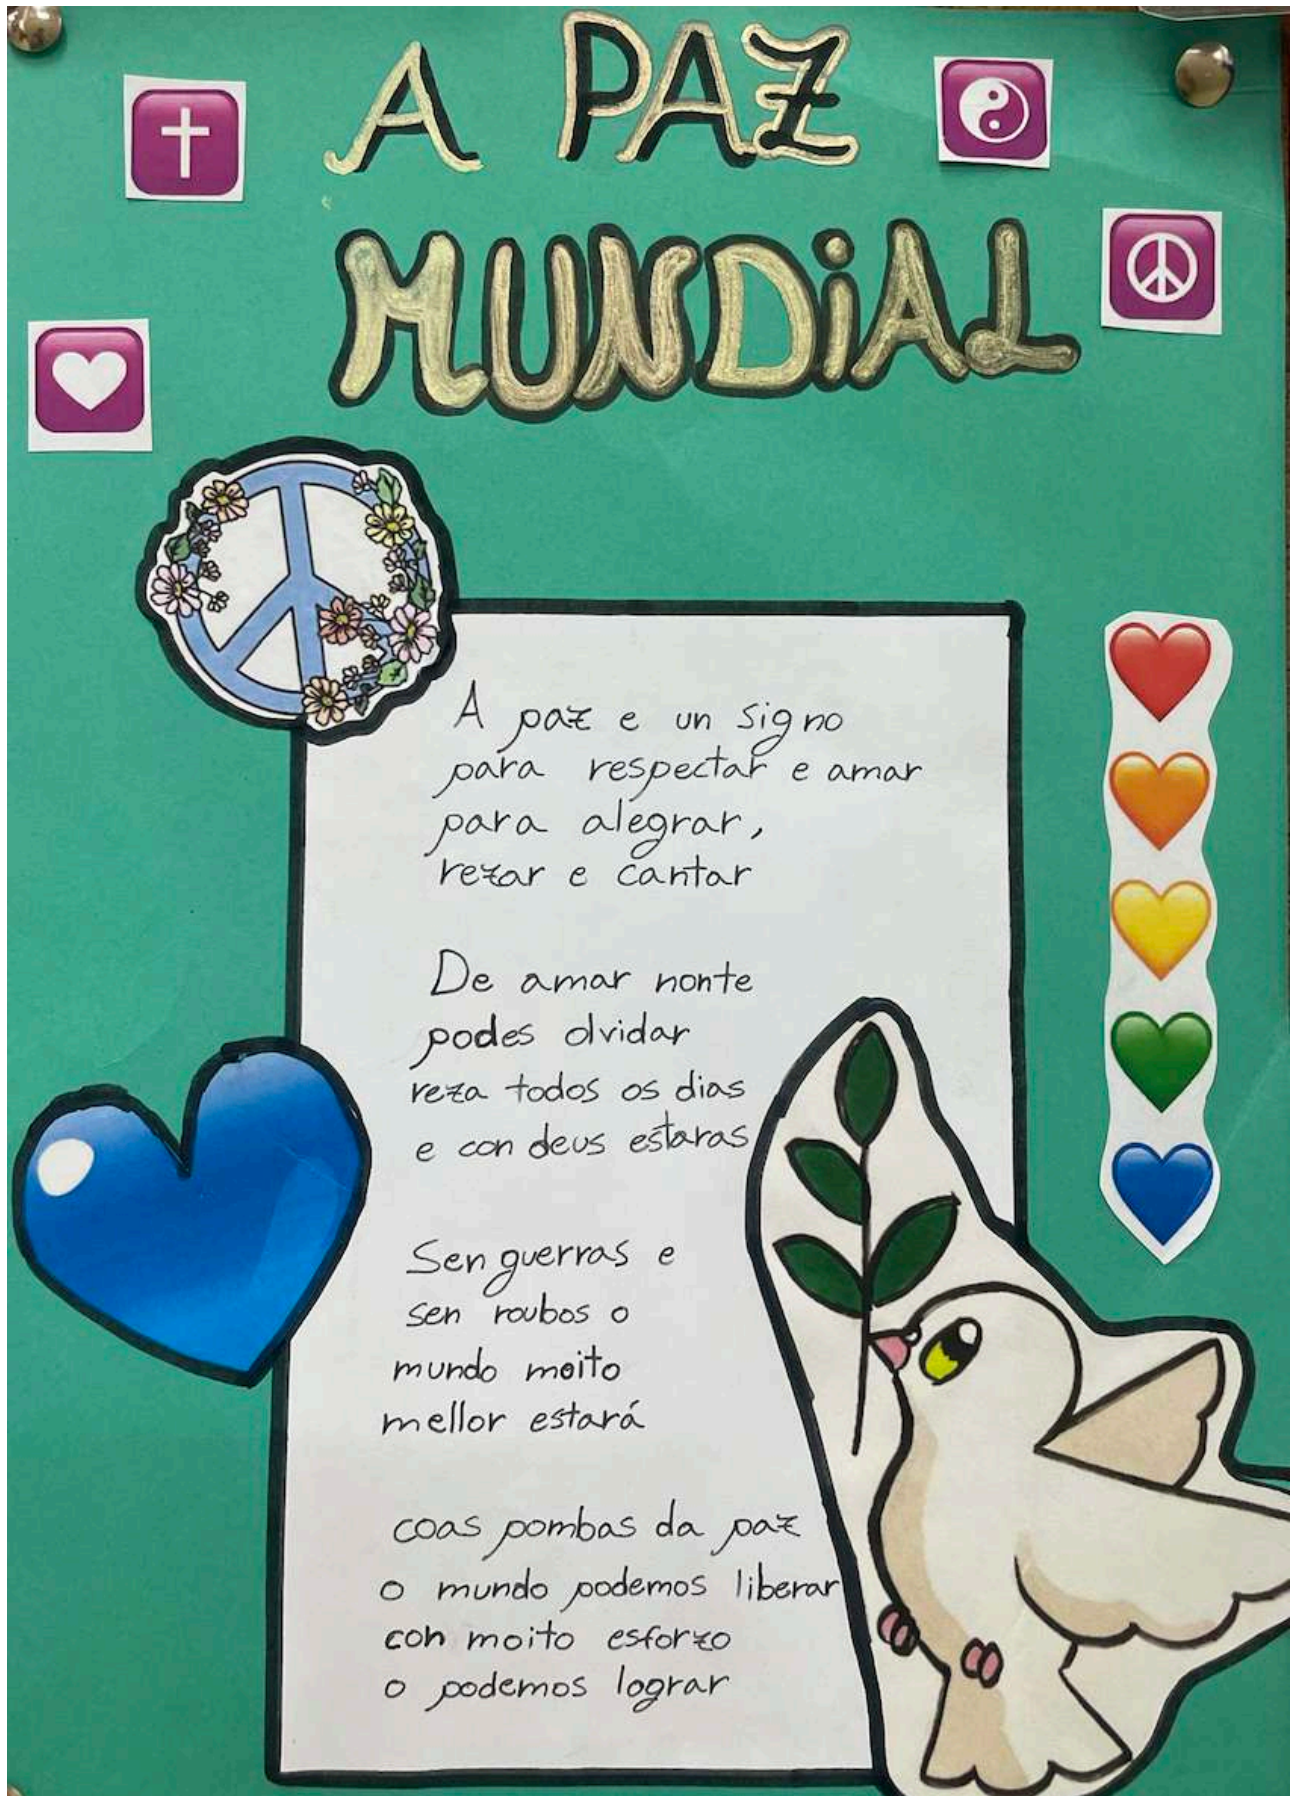 A PAZ
MUNDiAL
A paz e un signo
para respectar e amar
para alegrar,
rezar e cantar
De amar nonte
podes olvidar
reza todos os dias
e con deus estaras
Sen guerras e
sen roubos o
mundo moito
mellor estará
coas pombas da paz
o mundo podemos liberar
con moito esforzo
o podemos lograr